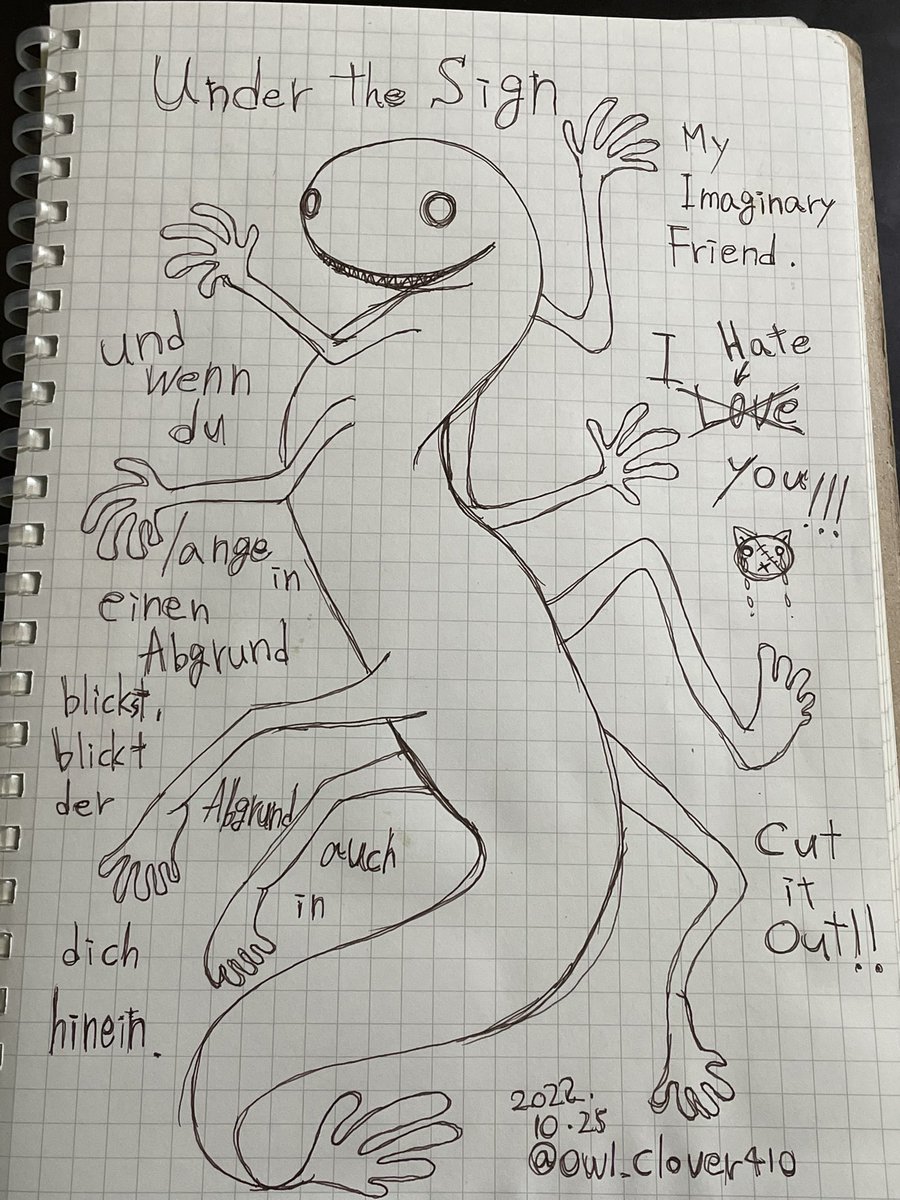 Under the Sign
My
Imaginary
Friend.
I Hate
Love
You!!!
und
wenn
du
lange
in
einen
Abgrund
blickst,
blickt
der
Abgrund
auch
in
dich
hinein.
Cut
it
Out!!
2022.
10.25
@owl_clover410